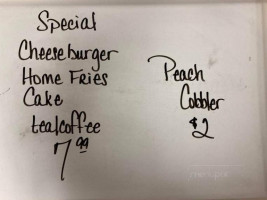 Special
Cheeseburger
Home Fries
Cake
tea/coffee
7.99
Peach
Cobbler
$2